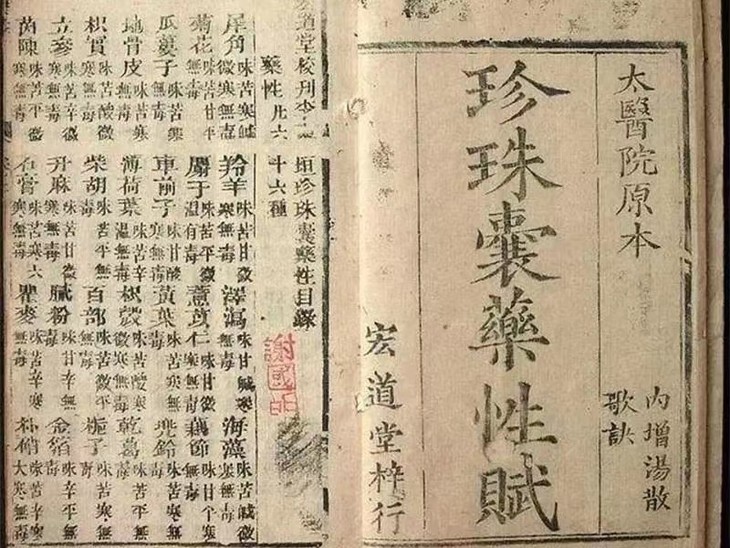 太醫院原本
內增湯散
歌訣
珍珠囊藥性賦
宏道堂梓行
宏道堂校刊李 垣珍珠囊藥性目錄
藥性凡六十六種
犀角 味苦寒鹹微寒無毒 羚羊 味苦甘微寒無毒 澤瀉 味甘鹹無毒 海藻 味苦鹹微寒無毒
菊花 味苦甘平無毒 味苦平微溫有毒 薏苡仁 味甘微寒無毒 藕節 味甘平寒無毒
瓜蔞子 味苦寒無毒 車前子 味甘酸寒無毒 黃葉 味苦寒無毒 兜鈴 味苦寒無毒
地骨皮 味苦寒無毒 薄荷葉 味苦辛微溫無毒 枳殼 味苦酸微寒無毒 乾葛 味苦平無毒
枳實 味苦酸微寒無毒 柴胡 味苦平無毒 百部 味苦微平無毒 梔子 味苦寒無毒
玄參 味苦辛寒無毒 升麻 味苦甘無毒 膩粉 味甘辛無毒 金箔 味辛平無毒
茵陳 味苦平微寒無毒 石膏 味苦寒六寒無毒 瞿麥 味苦辛寒無毒 朴硝 味苦辛大寒無毒
謝國